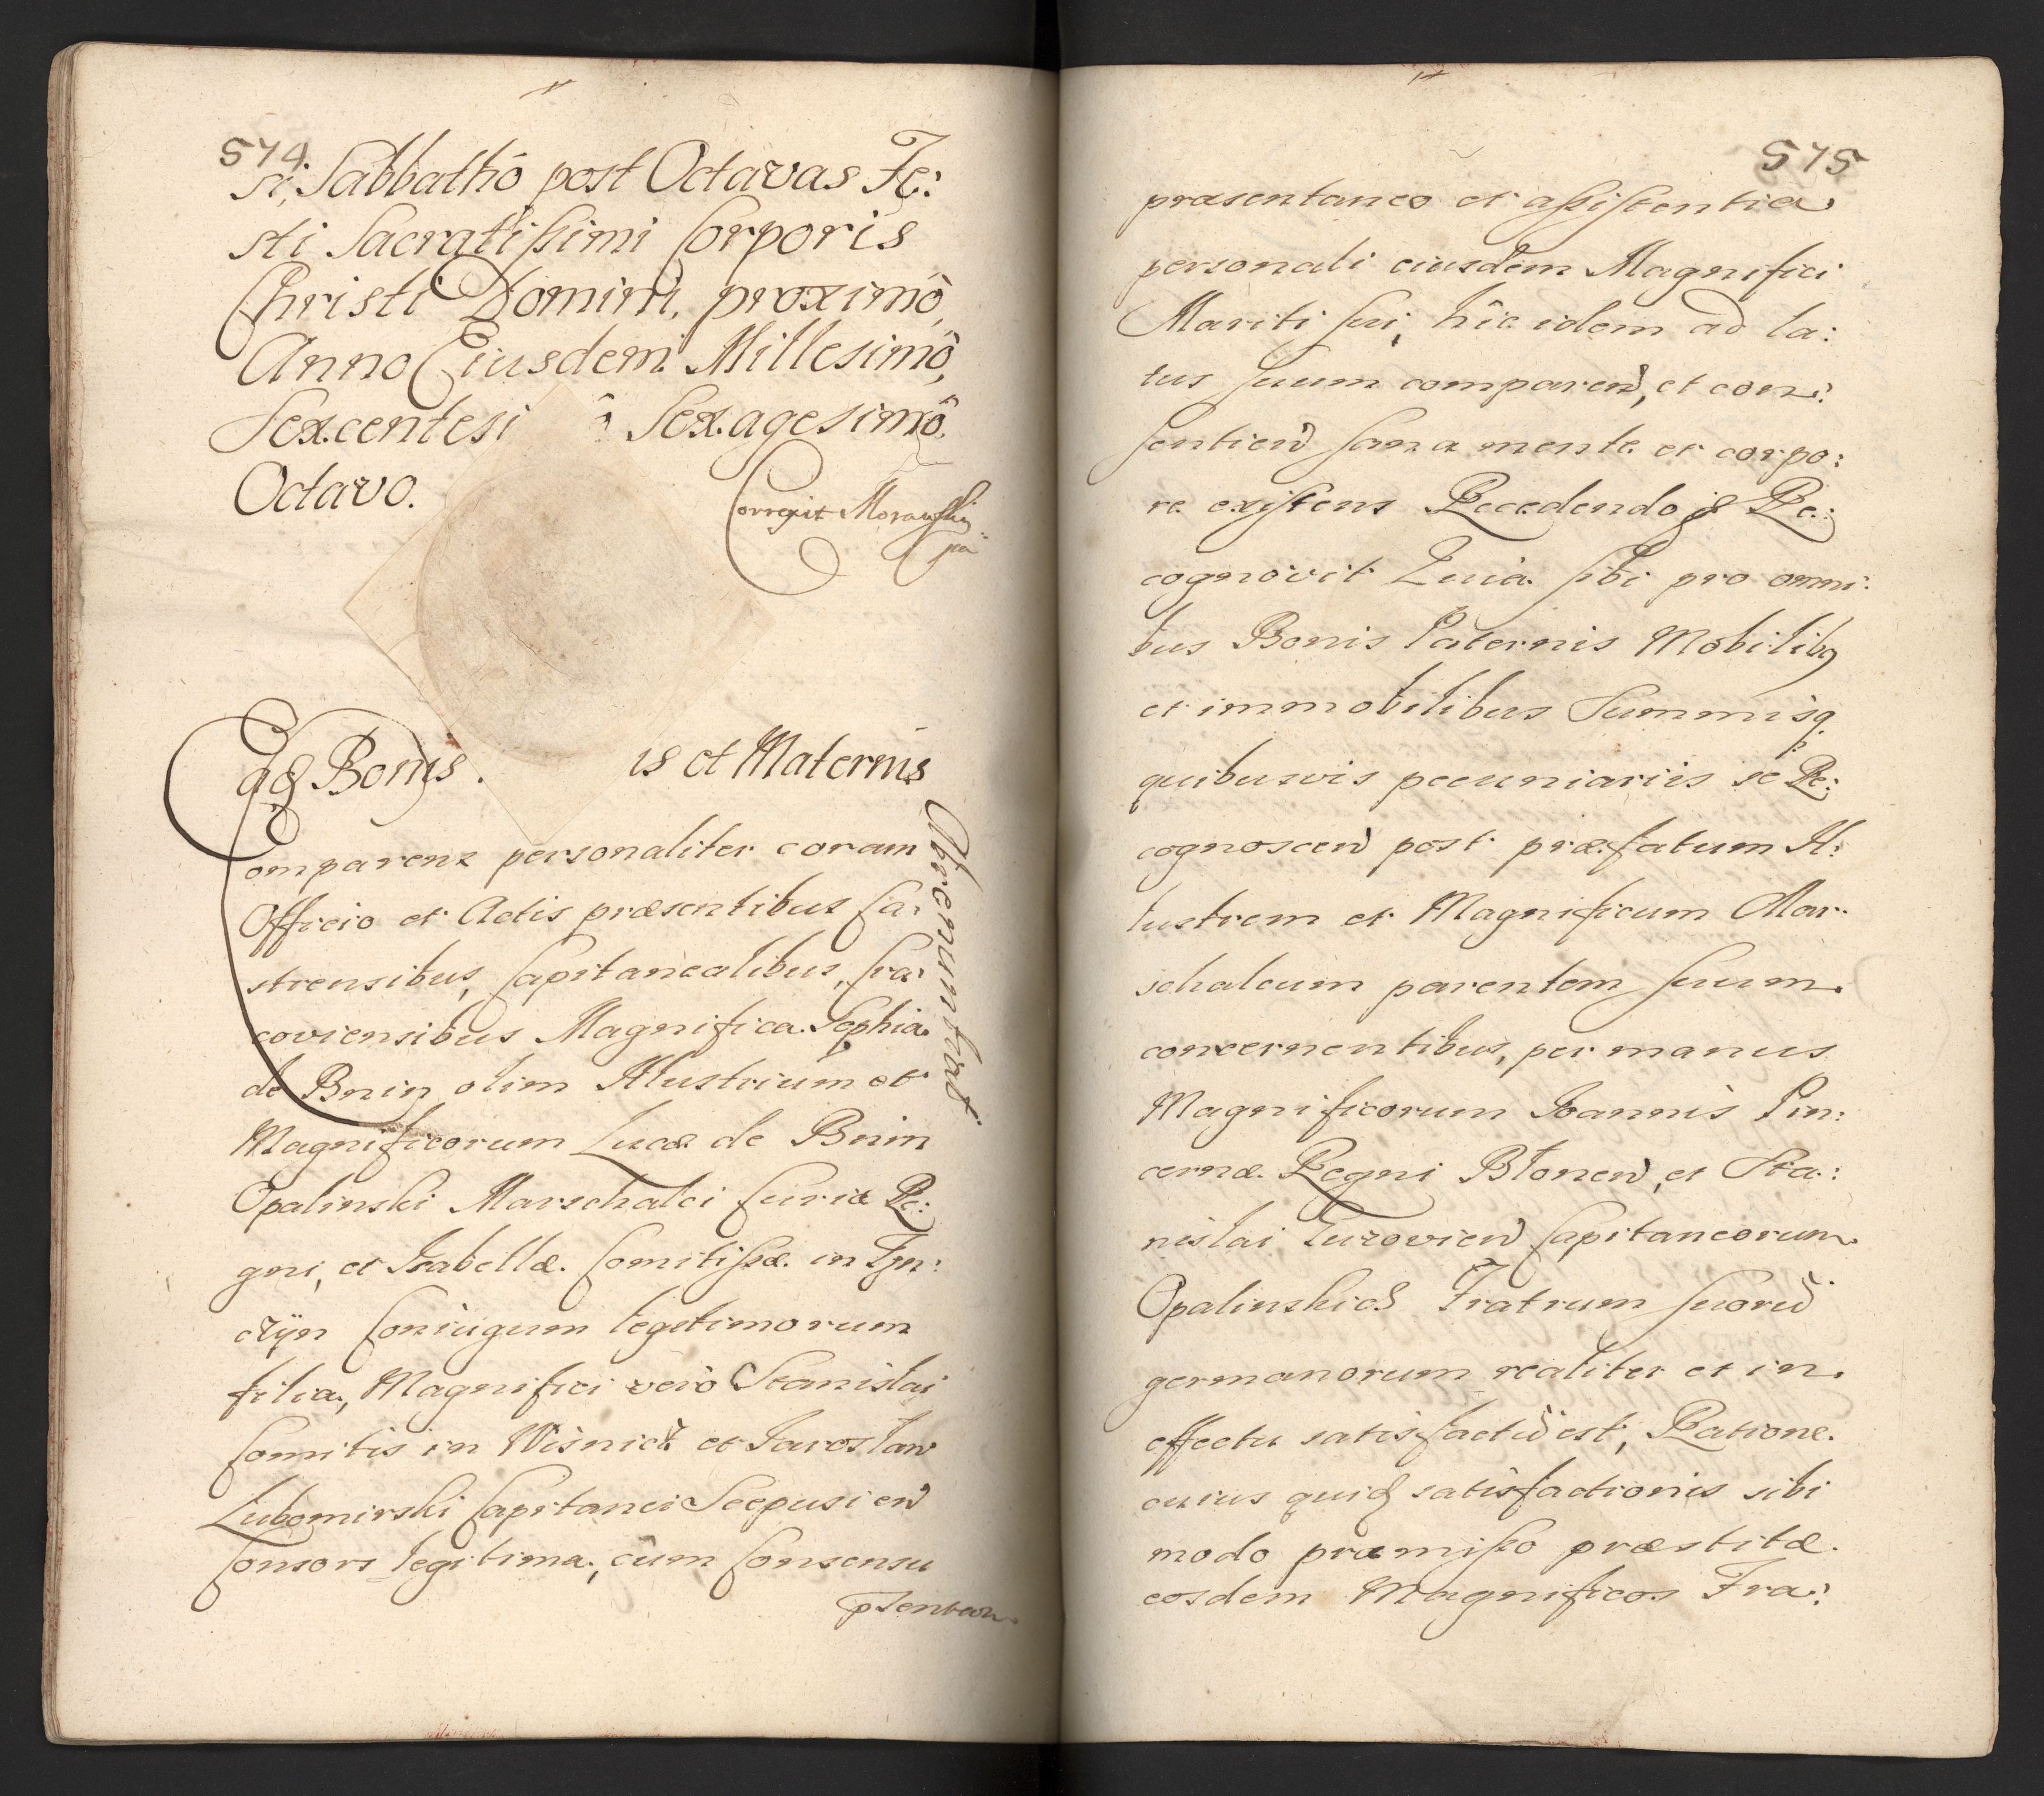 574.
si, Sabbathô post Octavas Fe:
sti Sacratissimi Corporis
Christi Domini, proximô,
Anno Eiusdem Millesimô,
Sexcentesi Sexagesimô
Octavo.
Correxit Morawski
pa
Bonis is et Maternis
Abrenuntiat
Comparens personaliter coram
Officio et Actis præsentibus Ca:
strensibus, Capitanealibus, Cra:
coviensibus Magnifica Sophia
de Bnin olim Illustrium et
Magnificorum Lucæ de Bnin
Opalinski Marschalci Curiæ Re:
gni, et Isabellæ Comitissæ in Tęn:
czÿn Coniugum legitimorum
filia, Magnifici verò Stanislai
Comitis in Wisnicz et Iarosław
Lubomirski Capitanei Scepusień
Consors legitima, cùm Consensu
575
præsentaneo et assistentia
personali eiusdem Magnifici
Mariti sui, hîc idem ad la:
tus suum compareń, et con:
sentień sana mente et corpo:
re existens Recedendo Re:
cognovit Quia sibi pro omni:
bus Bonis Paternis Mobilibq
et immobilibus Summisq
quibusvis pecuniariis se Re:
cognosceń post præfatum Il:
lustrem et Magnificum Mar:
schalcum parentem suum
concernentibus, per manus
Magnificorum Ioannis Pin:
cernæ Regni Błoneń, et Sta:
nislai Gurovień Capitaneorum
Opalinskich Fratrum suorũ
germanorum realiter et in
effectu satisfactũ est, Ratione
cuius quidẽ satisfactionis sibi
modo præmisso præstitæ
eosdem Magnificos Fra: